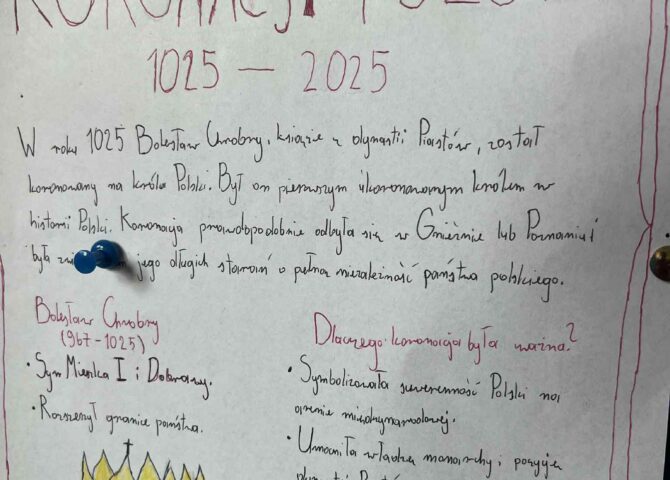 1025 — 2025
W roku 1025 Bolesław Chrobry, książe z dynastii Piastów, został
koronowany na króla Polski. Był on pierwszym ukoronowanym królem w
historii Polski. Koronacja prawdopodobnie odbyła się w Gnieźnie lub Poznaniu i
była jego długich starań o pełna niezależność państwa polskiego.
Bolesław Chrobry
(967-1025)
• Syn Mieszka I i Dobrawy.
• Rozszerzył granice państwa.
Dlaczego koronacja była ważna?
• Symbolizowała suwerenność Polski na
arenie międzynarodowej.
• Umocniła władzę monarchy i pozycję